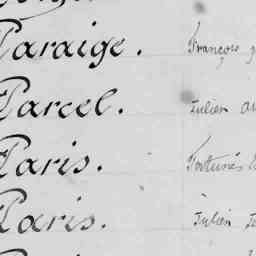 Paraige. François
Parcel. Julien
Paris. Fortuné
Paris. Julien